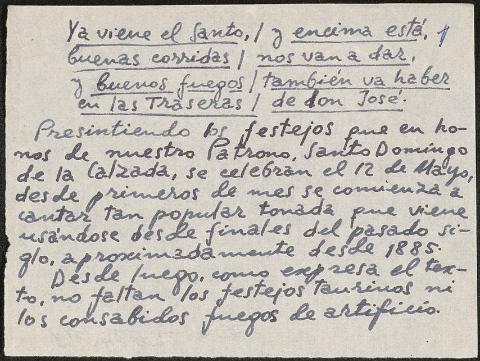 Ya viene el Santo, / y encima está,
buenas corridas / nos van a dar,
y buenos fuegos / también va haber
en las Traseras / de don José.
Presintiendo los festejos que en ho-
nos de nuestro Patrono, Santo Domingo
de la Calzada, se celebran el 12 de Mayo,
desde primeros de mes se comienza a
cantar tan popular tonada que viene
usándose desde finales del pasado si-
glo, aproximadamente desde 1885.
Desde luego, como expresa el tex-
to, no faltan los festejos taurinos ni
los consabidos fuegos de artificio.